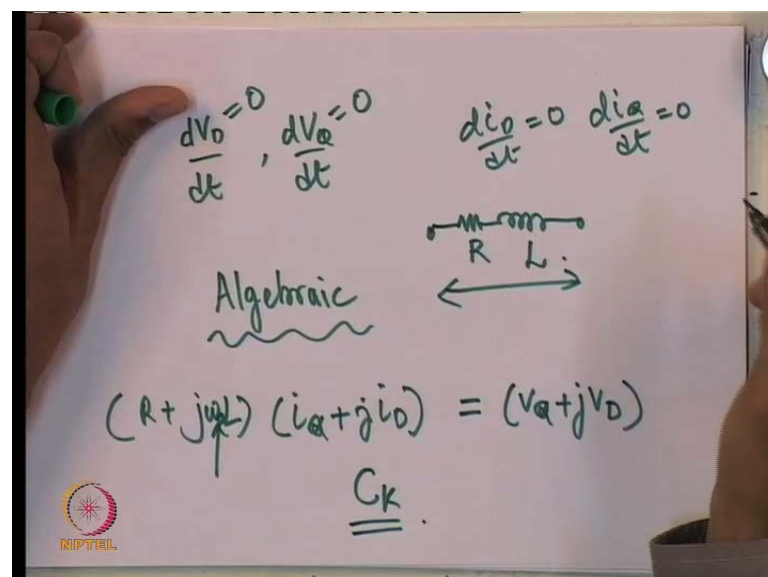 dV_D/dt = 0 , dV_Q/dt = 0
di_D/dt = 0 di_Q/dt = 0
R L .
Algebraic
(R + jωL) (i_Q + j i_D) = (V_Q + j V_D)
C_K .
NPTEL